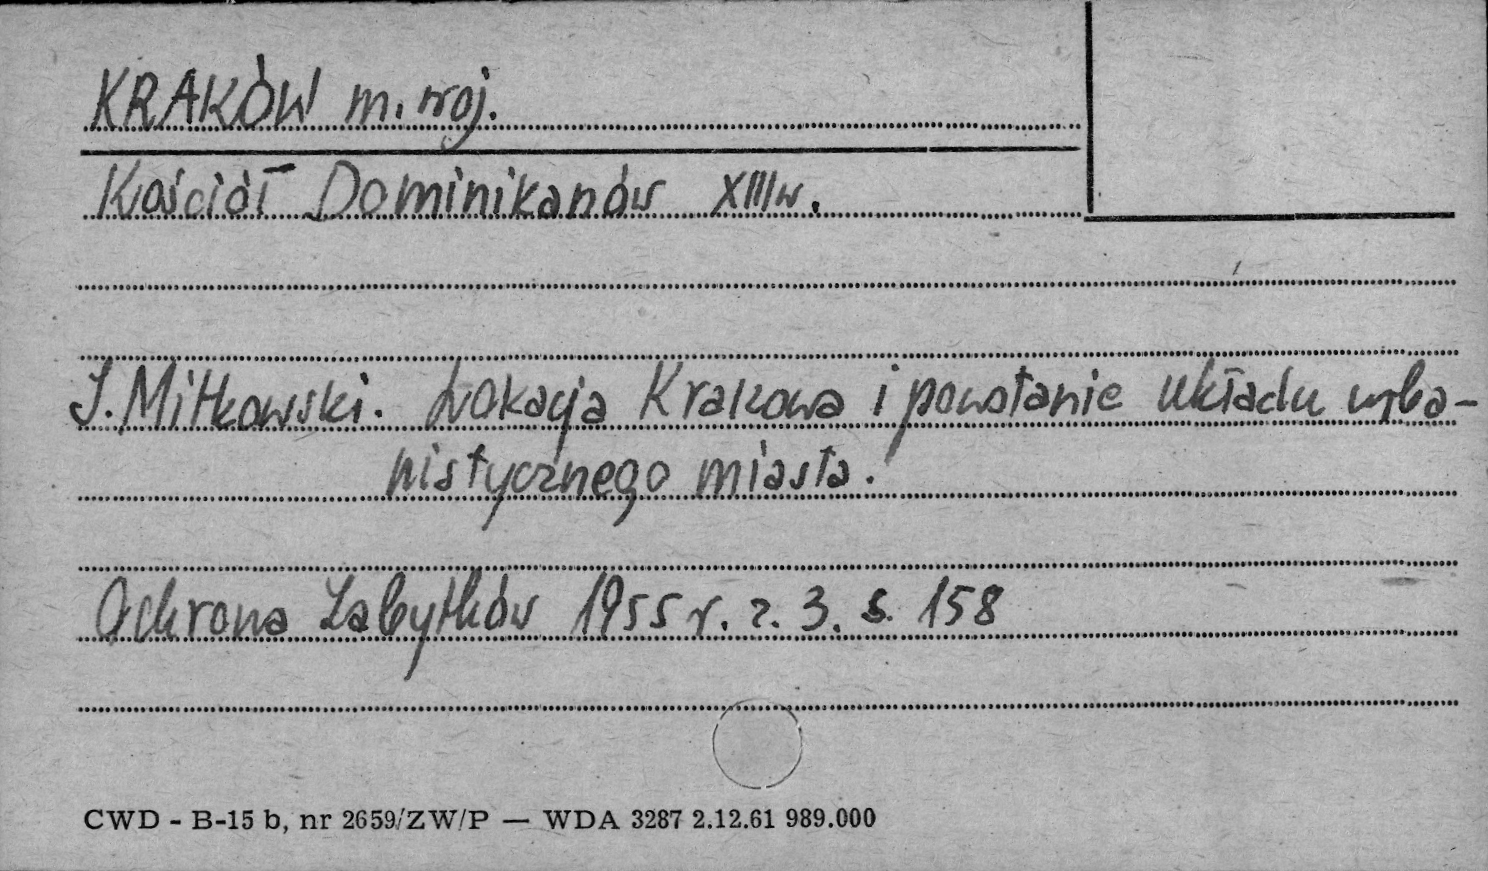 KRAKÓW m. woj.
Kościół Dominikanów XIII w.
J. Mitkowski. Lokacja Krakowa i powstanie układu urba-
nistycznego miasta.
Ochrona Zabytków 1955 r. z. 3. s. 158
CWD - B-15 b, nr 2659/ZW/P — WDA 3287 2.12.61 989.000